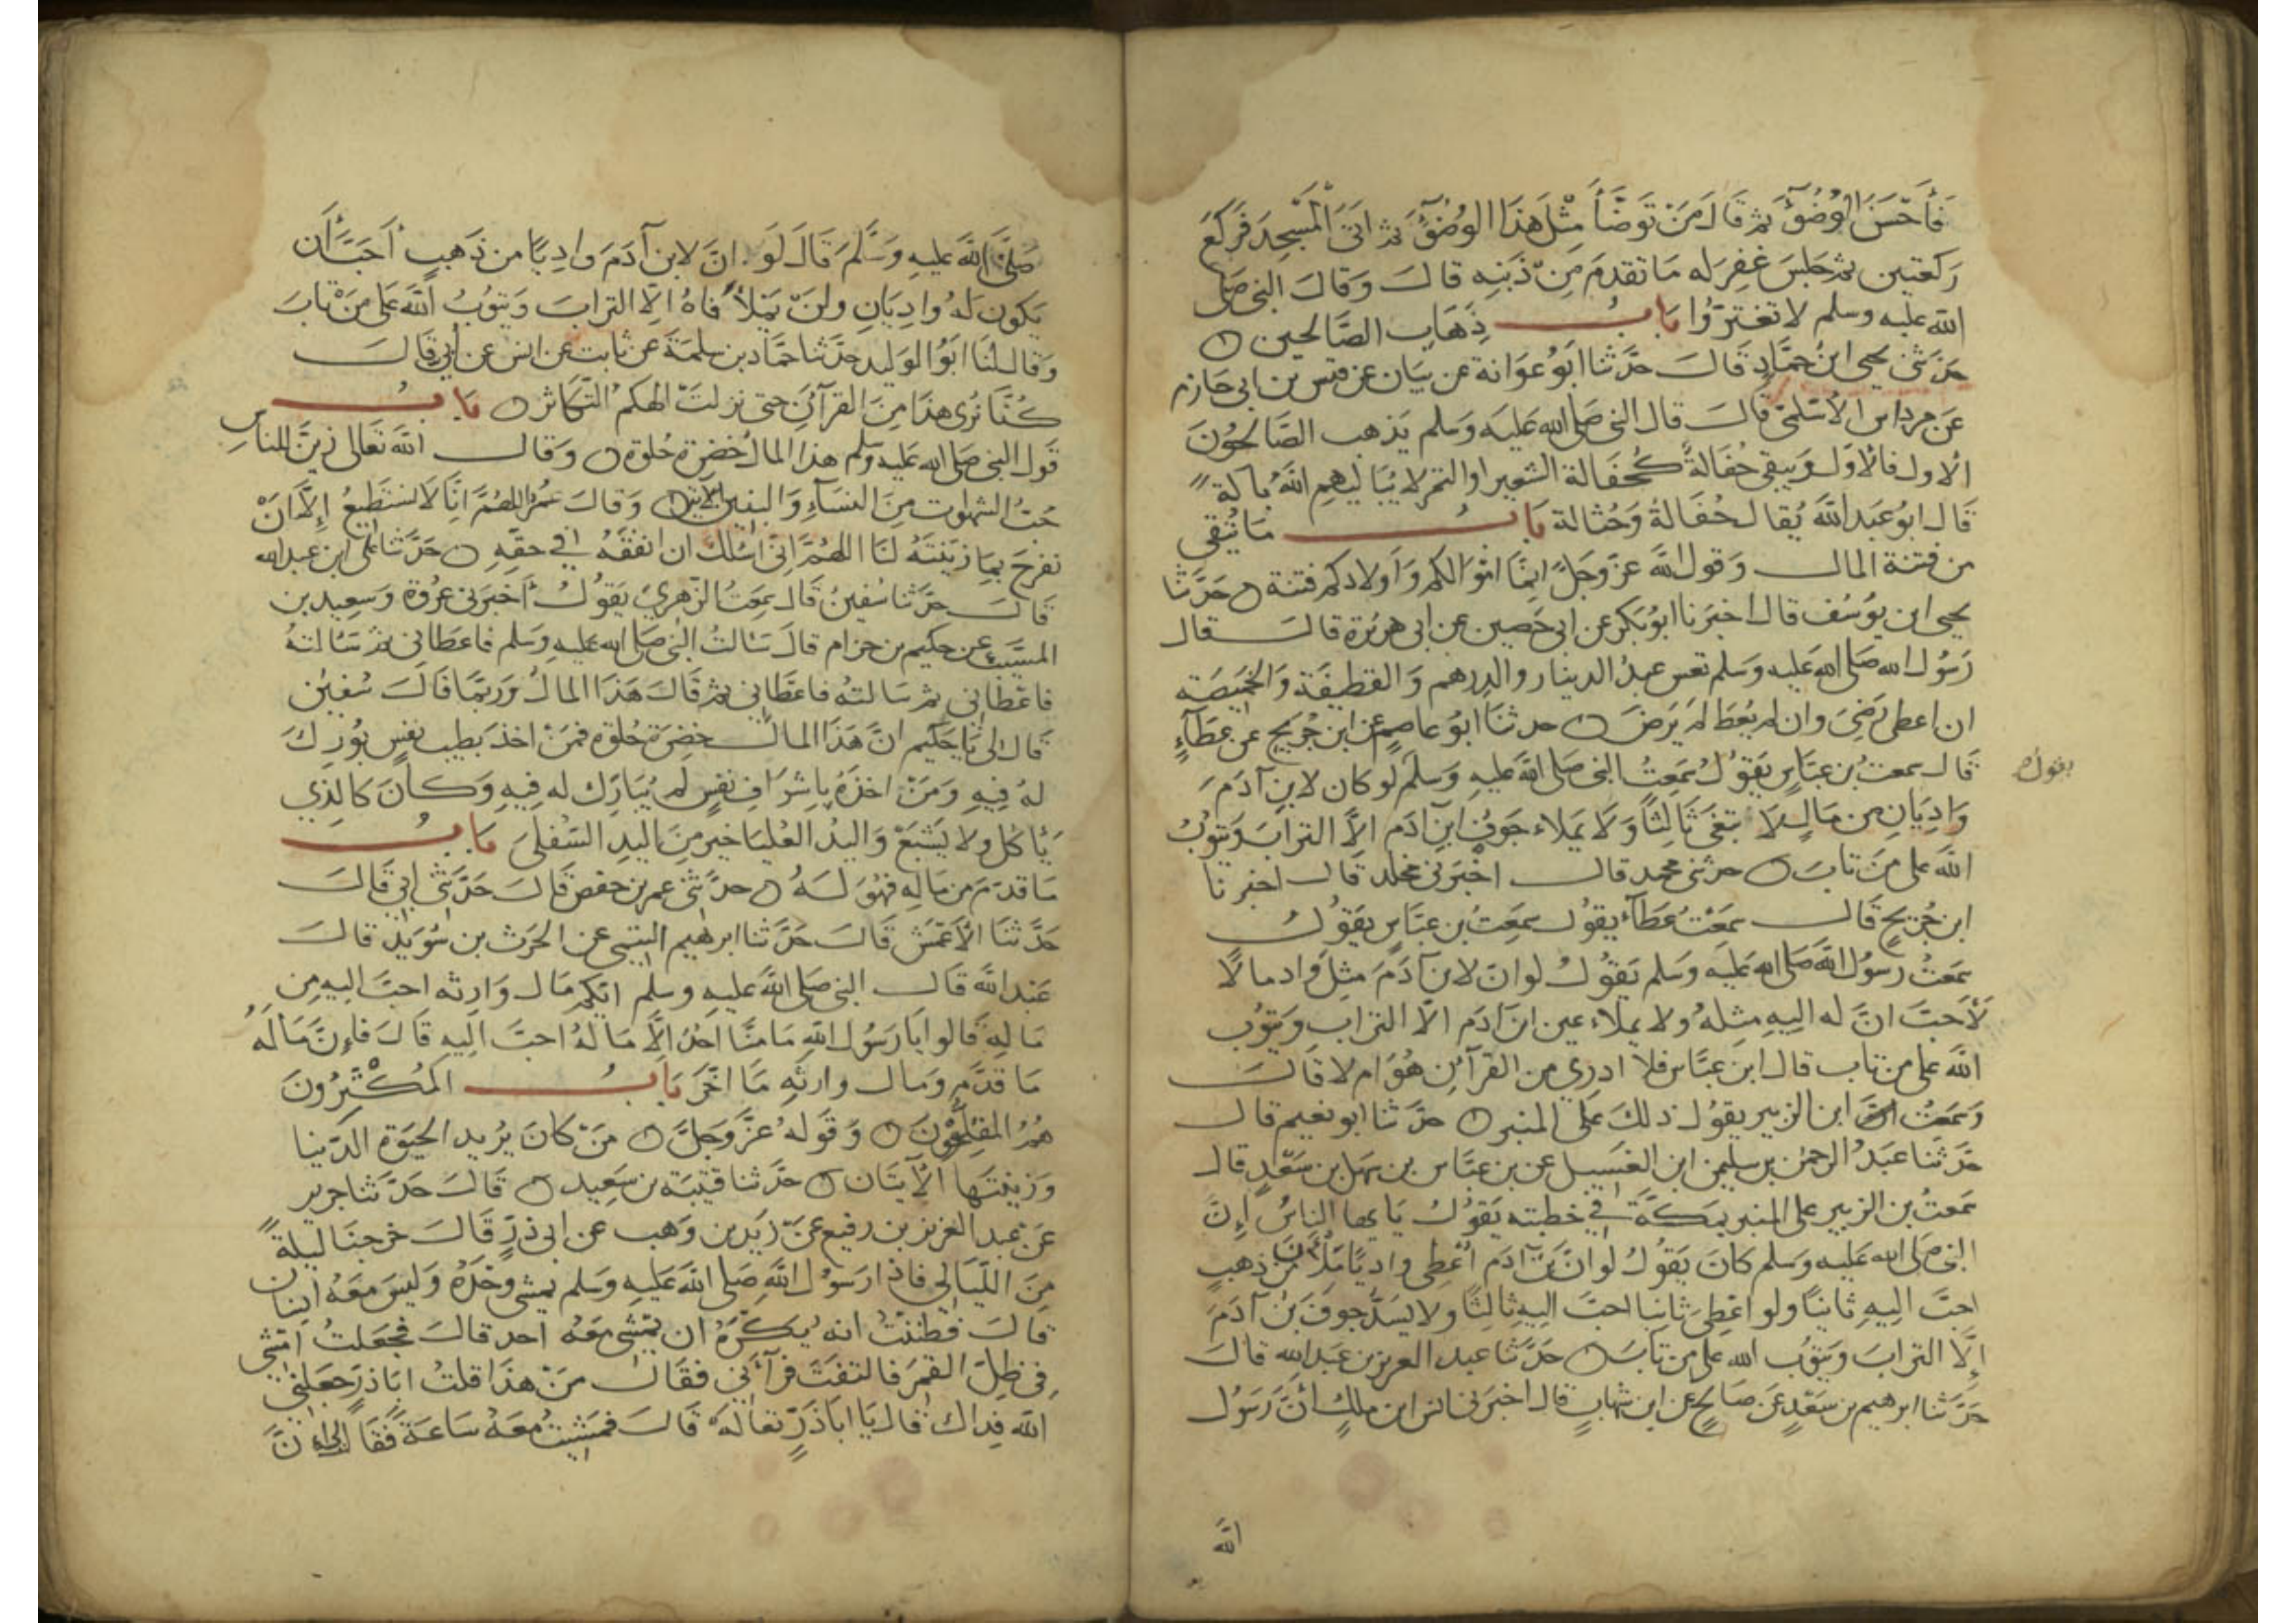 فَأَحْسَنَ الوُضُوءَ ثم قَالَ مَنْ تَوَضَّأَ مِثْلَ هَذَا الوُضُوءَ ثم اتَى المَسْجِدَ فَرَكَعَ
رَكعتين ثم جَلَسَ غفِرَ له مَا تقدمَ مِنْ ذَنبِه قالَ وَقَالَ النبى صلى
الله عليه وسلم لا تَغْتَرّوُا بَابُ ذِهَابِ الصَّالحين
حَدَثَنى يحيى ابنُ حَمَّادٍ قَالَ حَدَّثنا ابُو عَوَانة عن بيَان عن قيس بن ابى حَازم
عَن مرداس الاسْلَمىّ قَالَ قال النبى صَلى الله عَليَه وَسَلم يَذهب الصَّالحُونَ
الاول فَالاوّل وَيبقى حُفَالةٌ كَحُفَالة الشعيرِ او التمر لا يُبَاليهِمِ اللهُ بالة
قَال ابوُ عَبد اللهَ يُقال حُفَالةُ وَحُثالة بَابُ مَا يُتّقى
من فتنة المال وَقول اللهَ عزَ وَجَلّ انمَا اموَالكم وَاَولادكم فتنة حَدَّثنَا
يحيى ابن يوُسُف قال اخبَرَنا ابوُ بَكرٍ عن ابى حَصين عن ابى هريرَة قالَ قال
رَسُول الله صَلى الله عَليه وسَلم تعس عبدُ الدينار والدِرهم وَالقطيفَة وَالخميصَة
ان اعطى رَضِىَ وان لم يُعْطَ لمْ يَرضَ حدثنَا ابوُ عاصمٍ عن ابن جُرَيج عَن عَطَآءٍ
قَال سمعت بُن عبَّاسٍ يَقوُلُ سَمِعتُ النبى صَلى اللهَ عليهِ وَسَلمَ لو كان لابنِ آدَمَ
يقول
وَادِيَانِ من مَالٍ لا بتغى ثَالِثًا وَلَا يَملاء جَوفَ ابنِ آدَم الاَّ الترابَ وَيتوُبُ
اللهَ على مَنْ تابَ حدثنى محمد قال اخْبَرَنى مخلد قَال اخبرنا
ابن جُرَيج قَال سَمعْتُ عَطَآء يقوُل سَمِعتُ بن عبَّاسٍ يَقوُلُ
سَمعتُ رسوُل اللهَ صَلى الله عَليَه وَسَلم يَقوُلُ لو انّ لابن آدَمَ مثلَ وَادٍ مالًا
لَاَحَبَّ انَّ له اليِهِ مِثلَهُ ولا يملَاء عين ابن آدَم الاّ الترابِ وَيَتوُب
اللهَ على من تاب قال ابن عبَّاس فلا ادرِى من القرآنِ هُوَ ام لا قَالَ
وَسَمعتُ ابن الزبير يقوُل ذلكَ عَلى المنبرِ حدَّثنا ابو نعيم قال
حَدَّثنَا عَبَدُ الرحمن بن سليمن ابن الغَسيل عن بن عبَّاس بن سَهَل بن سَعْدٍ قال
سَمعتُ بن الزبيرِ على المنبر بمَكةَ فى خطبته يَقوُلُ يَا يها الناسُ اِنَّ
النبى صَلى الله عَليه وسَلم كانَ يَقوُلُ لو انَّ بنَ آدَم اُعْطِى وادِيًا مَلْأَنَ مّن ذهبٍ
احبَّ اليِهِ ثانيًا ولو اعْطِىَ ثانيا احبَّ اليِهِ ثالِثًا ولا يَسدّ جوفَ بنَ آدَمَ
اِلَّا الترابَ وَيتوُب الله على من تابَ حَدَّثنَا عبد العزيز بن عَبَد اللهِ قالَ
حَدَّثنا ابرهيم بن سَعْدٍ عَن صَالحٍ عَن ابن شهابٍ قال اخبَرَنى انس ابن ملكٍ أنَّ رَسوُل
الله
صَلىَّ اللهَ عليهِ وَسَلَّمَ قَالَ لَوَ انَ لابن آدَمَ وادِيًا من ذَهبٍ اَحَبَّ أن
يَكون لهُ وادِيَانِ ولنْ يَمْلأ فاهُ الِا الترابَ وَيتوُبُ اللهَ عَلى مَنْ تابَ
وَقال لنَا ابَوُ الوَليد حَدَّثنَا حَمَّاد بن سلمَةَ عن ثابت عن انس عن أبى قَالَ
كُنَّا نُرى هذَا مِنَ القرآنِ حتى نزلتَ الهكمُ التّكاثر بَابُ
قَول النبى صَلى الله عَليه وَسلم هذا المالُ خَضِرَة حُلوَة وَقَال اللهَ تَعالى زيّنَ للناس
حُبُّ الشهوت منَ النسَآءِ وَالبنين الآية وَقَالَ عُمرُ اللهُمَّ انَّا لَا نستطيعُ اِلَّا انْ
نفرحَ بِمَا زيّنتَهُ لنَا اللهُمَّ انِّى اَسْئلك ان انفقهُ فِى حقّهِ حَدَّثنا على ابن عبد الله
قَالَ حَدَّثنا سُفينُ قَال سَمِعتُ الزّهرِىّ يَقوُلُ أخبَرَنى عُروَة وَسَعِيد بن
المسَيَّب عن حكيم بن حزام قالَ سَئالتُ النبى صَلى الله عليهِ وَسَلم فاعَطانى ثم سَئالتهُ
فاعَطانى ثم سَالتهُ فاعَطَانِى ثم قَالَ هَذَا المالُ وَرُبمّا قَالَ سُفينُ
قَال لى يَا حَكيم انَّ هَذَا المالَ خضِرَة حُلوَة فمَنْ اخذَ بطيبِ نفَسٍ بوُرِكَ
لهُ فِيهِ وَمَنْ اخذَهُ باِشرَافِ نفَسٍ لم يُبَارَك له فِيهِ وَكانَ كالَذِى
يَأكل ولا يَشْبَعْ وَاليدُ العُليَا خيرٌ منَ اليدِ السّفلى بَابُ
مَا قدّمَ من مَالِهِ فَهُوَ لَهُ حدّثنى عمر بن حفص قَالَ حَدَّثنى ابى قَالَ
حَدَّثنَا الاَعْمَشْ قَالَ حَدَّثنا ابرهيم التيمى عن الحَرث بن سُوَيد قالَ
عَبد اللهَ قَال النبى صَلى اللهَ عليهِ وسلم ايّكم مَال وَارِثه احبّ اليهِ مِن
مَالهِ قَالوا يَا رَسُول اللهِ مَا منَّا احدُ اِلَّا مَالهُ احبَّ اليهِ قَالَ فاِنَّ مَالَهُ
مَا قدّمَ وَمال وارثهِ مَا اخّرَ بَابُ المُكْثِرُونَ
هُمُ المقِلُّونَ وَقولهُ عزَّ وَجَلَّ مَنْ كانَ يرُيد الحيَوة الدّنيا
وَزينتَها الآيتَان حَدَّثنا قتيبَة بن سَعِيد قَالَ حَدَّثنا جرير
عَن عبد العزيز بن رفيع عَن زيد بن وَهب عن ابى ذرٍّ قَالَ خَرجنَا ليلةً
منَ اللّيَالِى فاذا رَسوُل اللهِ صَلى اللهَ عَليهِ وَسلم يمشى وَحْدَهُ وَليسَ مَعَهُ انسَان
قَالَ فظننتُ انه يَكرَهُ ان يمشى مَعَه احد قالَ فجَعَلتُ امشى
فِى ظِلّ القمَر فالتفَتَ فرَآنِى فقَالَ مَنْ هذَا قلتُ ابَا ذرٍّ جعَلنِى
اللهَ فِداك قَال يَا ابَا ذَرٍّ تعَالهْ قَالَ فمَشيْتُ مَعَهُ سَاعَةً فقَال لى انَّ